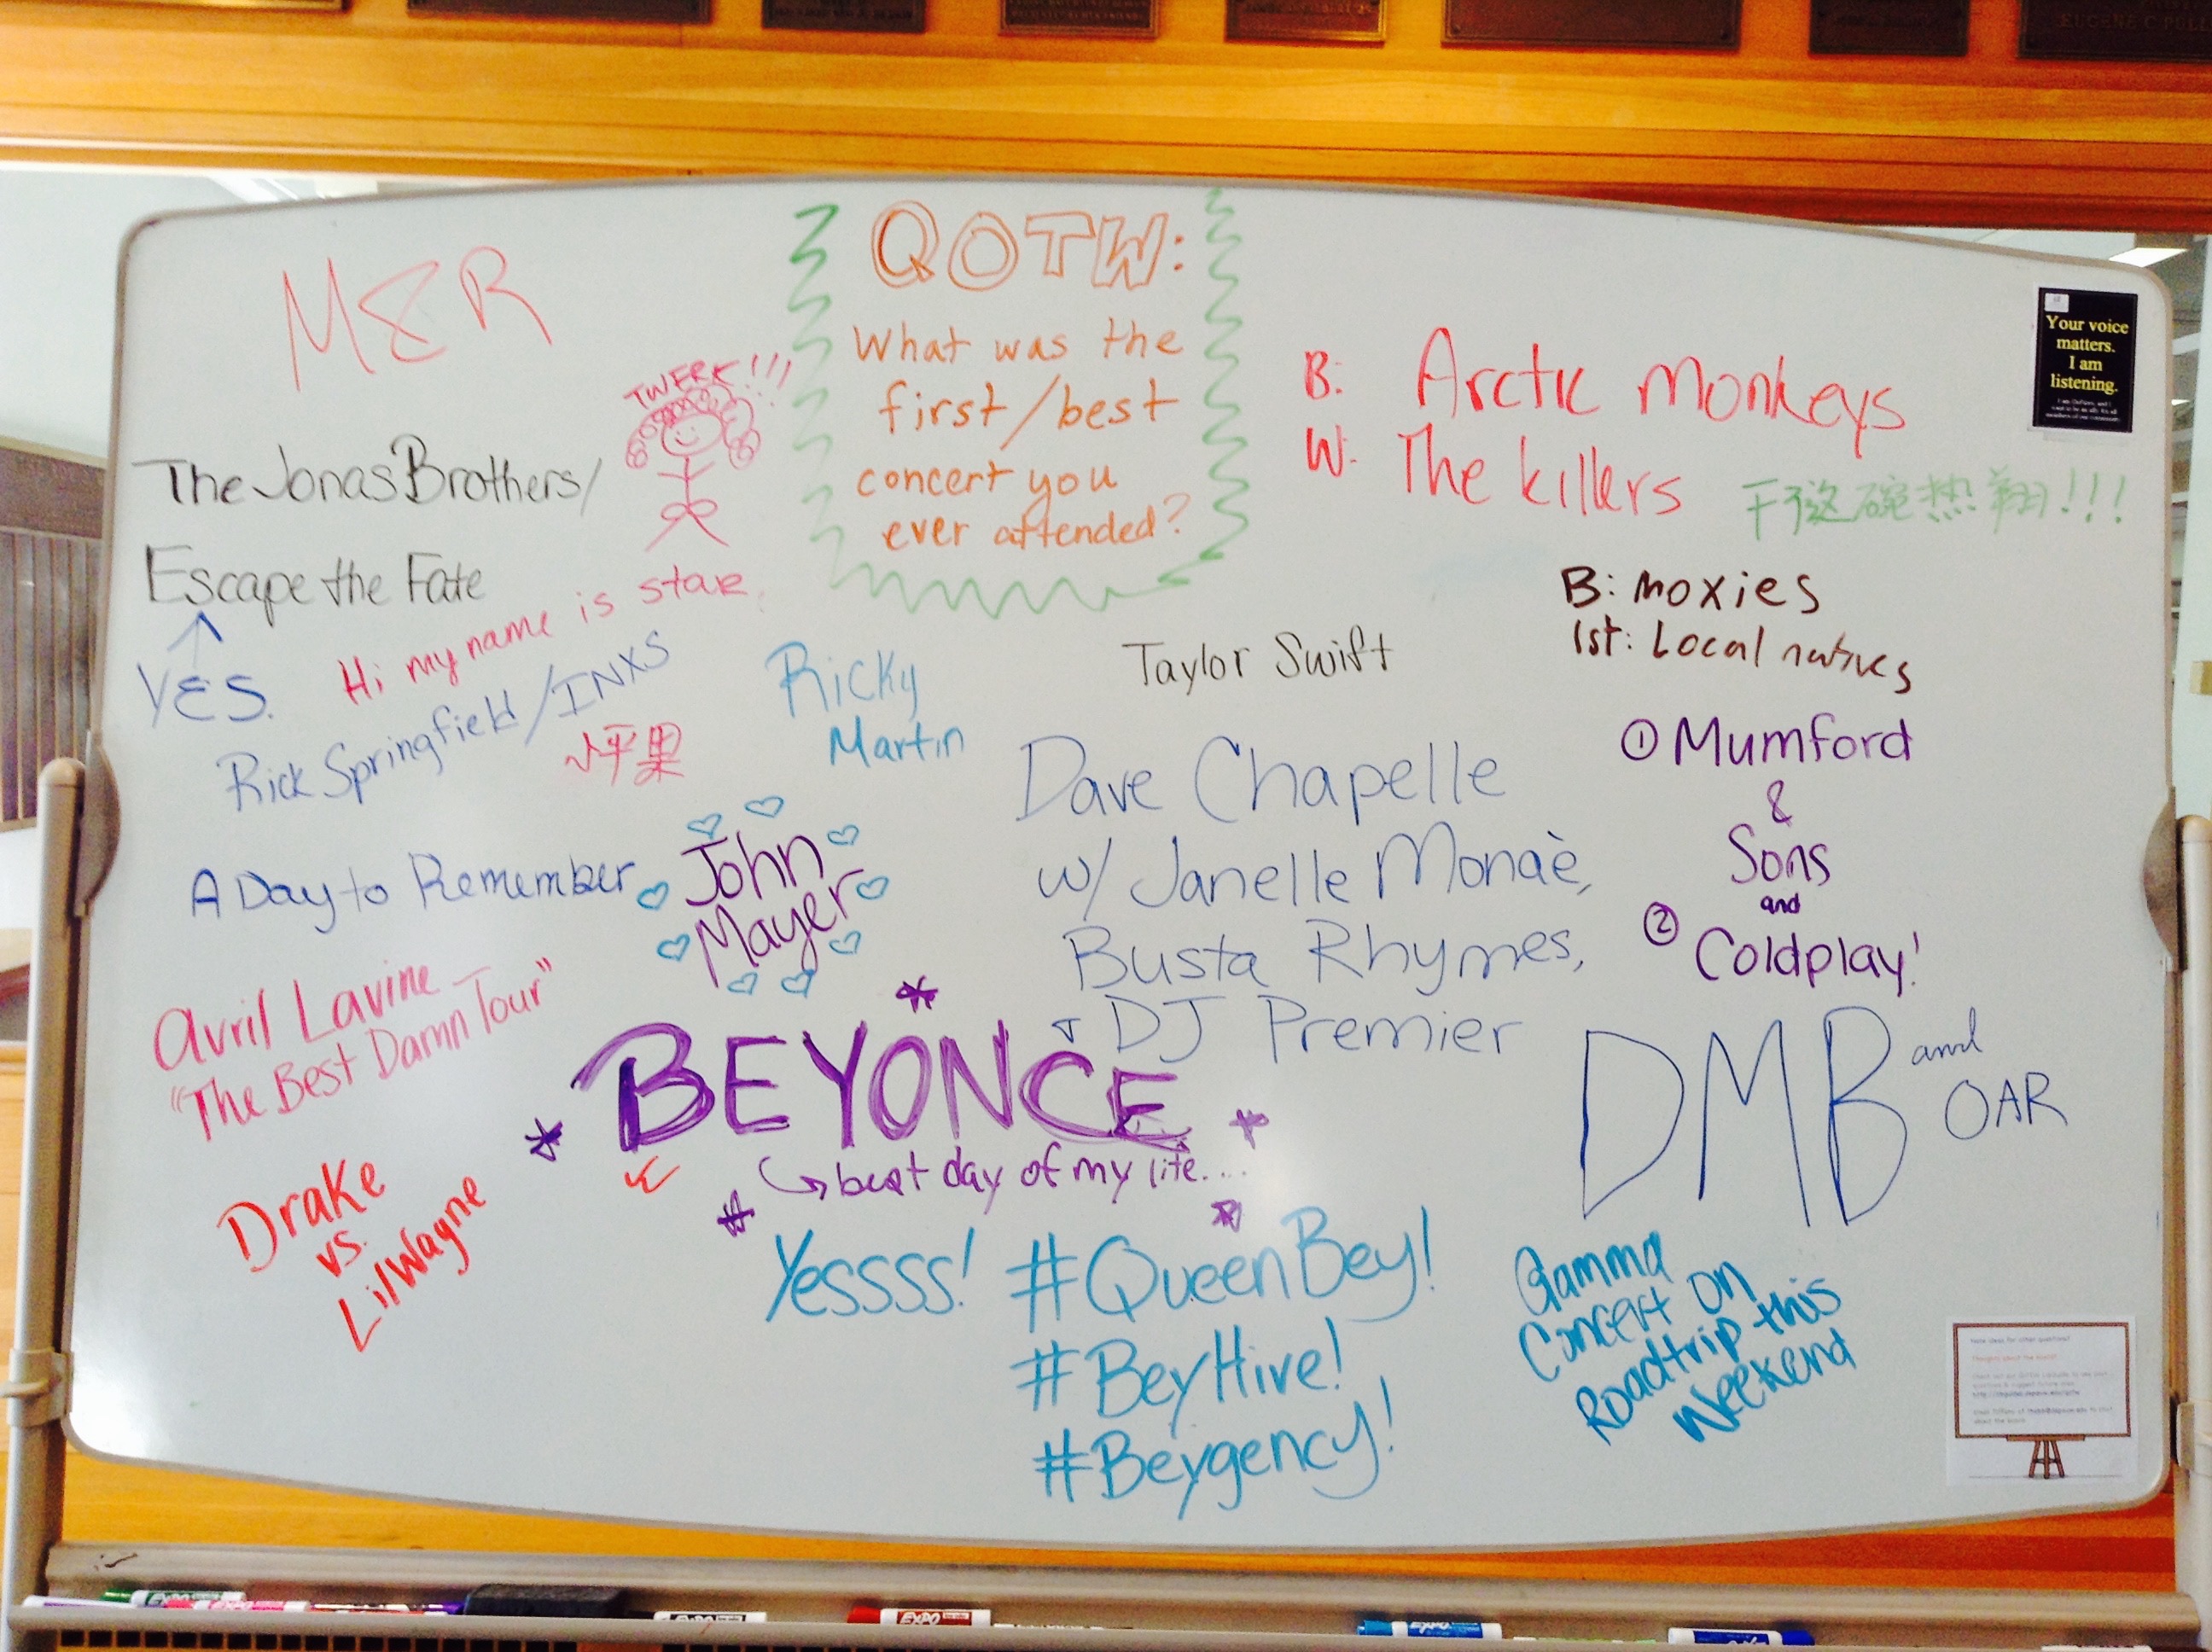 QOTW:
What was the
first/best
concert you
ever attended?
M&R
TWERK!!!
The Jonas Brothers/
Escape the Fate
YES.
Hi my name is star
Rick Springfield/INXS
小苹果
Ricky
Martin
A Day to Remember
John
Mayer
Avril Lavine
"The Best Damn Tour"
Drake
vs.
Lil Wayne
BEYONCE
best day of my life....
Yessss! #QueenBey!
#BeyHive!
#Beygency!
Taylor Swift
Dave Chapelle
w/ Janelle Monaè,
Busta Rhymes,
+ DJ Premier
B: Arctic Monkeys
W: The killers
干了这碗热翔!!!
B: moxies
1st: Local natives
① Mumford
&
Sons
and
② Coldplay!
DMB and
OAR
Gamma
Concert on
Roadtrip this
Weekend
Your voice
matters.
I am
listening.
EUGENE C PUL
EXPO
EXPO
EXPO
EXPO